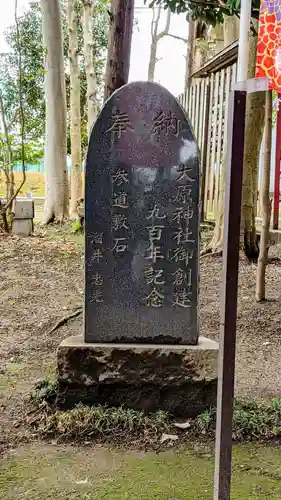 奉納
大原神社御創建
九百年記念
一参道敷石
溜井忠光